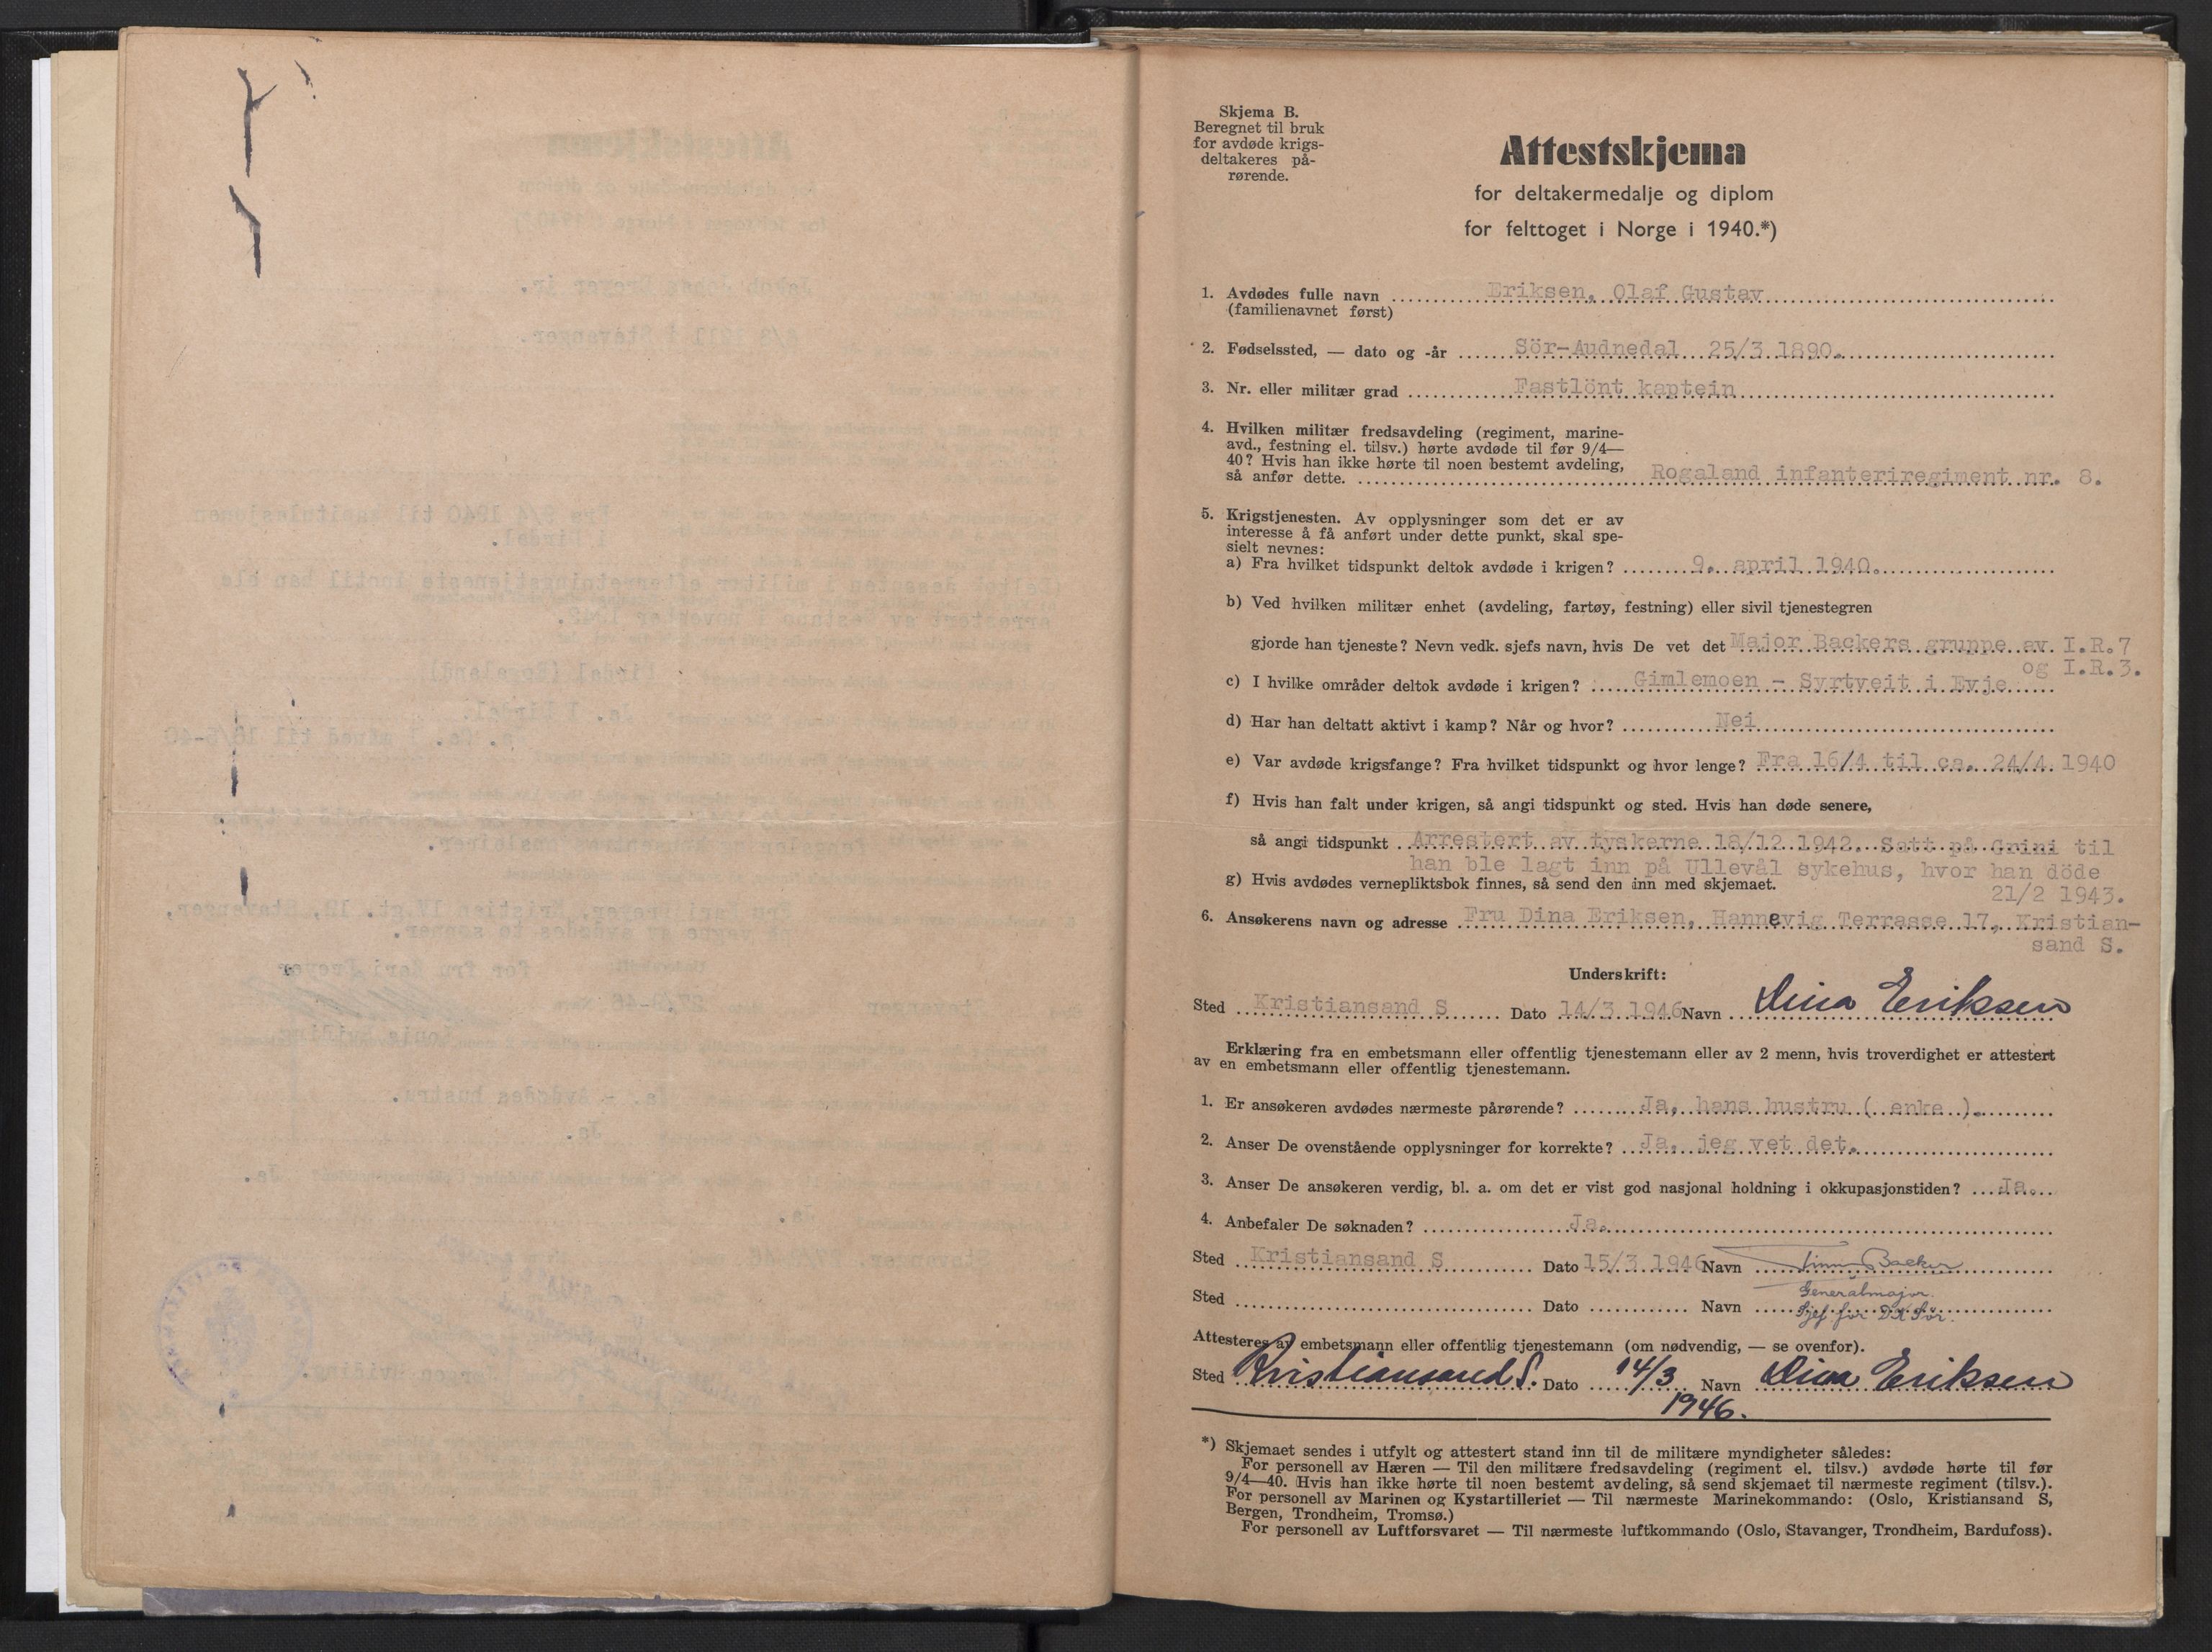 Skjema B.
Beregnet til bruk
for avdøde krigs-
deltakeres på-
rørende.
Attestskjema
for deltakermedalje og diplom
for felttoget i Norge i 1940.*)
1. Avdødes fulle navn Eriksen, Olaf Gustav
(familienavnet først)
2. Fødselssted, — dato og -år Sör-Audnedal 25/3 1890.
3. Nr. eller militær grad Fastlönt kaptein
4. Hvilken militær fredsavdeling (regiment, marine-
avd., festning el. tilsv.) hørte avdøde til før 9/4—
40? Hvis han ikke hørte til noen bestemt avdeling,
så anfør dette. Rogaland infanteriregiment nr. 8.
5. Krigstjenesten. Av opplysninger som det er av
interesse å få anført under dette punkt, skal spe-
sielt nevnes:
a) Fra hvilket tidspunkt deltok avdøde i krigen? 9. april 1940.
b) Ved hvilken militær enhet (avdeling, fartøy, festning) eller sivil tjenestegren
gjorde han tjeneste? Nevn vedk. sjefs navn, hvis De vet det Major Backers gruppe av I.R.7
og I.R.3.
c) I hvilke områder deltok avdøde i krigen? Gimlemoen - Syrtveit i Evje
d) Har han deltatt aktivt i kamp? Når og hvor? Nei
e) Var avdøde krigsfange? Fra hvilket tidspunkt og hvor lenge? Fra 16/4 til ca. 24/4 1940
f) Hvis han falt under krigen, så angi tidspunkt og sted. Hvis han døde senere,
så angi tidspunkt Arrestert av tyskerne 18/12 1942. Satt på Grini til
han ble lagt inn på Ullevål sykehus, hvor han döde
g) Hvis avdødes vernepliktsbok finnes, så send den inn med skjemaet. 21/2 1943.
6. Ansøkerens navn og adresse Fru Dina Eriksen, Hannevig Terrasse 17, Kristian-
sand S.
Underskrift:
Sted Kristiansand S Dato 14/3 1946 Navn Dina Eriksen
Erklæring fra en embetsmann eller offentlig tjenestemann eller av 2 menn, hvis troverdighet er attestert
av en embetsmann eller offentlig tjenestemann.
1. Er ansøkeren avdødes nærmeste pårørende? Ja, hans hustru ( enke ).
2. Anser De ovenstående opplysninger for korrekte? Ja, jeg vet det.
3. Anser De ansøkeren verdig, bl. a. om det er vist god nasjonal holdning i okkupasjonstiden? Ja.
4. Anbefaler De søknaden? Ja.
Sted Kristiansand S Dato 15/3 1946 Navn Backer
Generalmajor.
Sted Dato Navn Sjef for DK Sør.
Attesteres av embetsmann eller offentlig tjenestemann (om nødvendig, — se ovenfor).
Sted Kristiansand S. Dato 14/3 Navn Dina Eriksen
1946.
*) Skjemaet sendes i utfylt og attestert stand inn til de militære myndigheter således:
For personell av Hæren — Til den militære fredsavdeling (regiment el. tilsv.) avdøde hørte til før
9/4—40. Hvis han ikke hørte til noen bestemt avdeling, så send skjemaet til nærmeste regiment (tilsv.).
For personell av Marinen og Kystartilleriet — Til nærmeste Marinekommando: (Oslo, Kristiansand S,
Bergen, Trondheim, Tromsø.)
For personell av Luftforsvaret — Til nærmeste luftkommando (Oslo, Stavanger, Trondheim, Bardufoss).